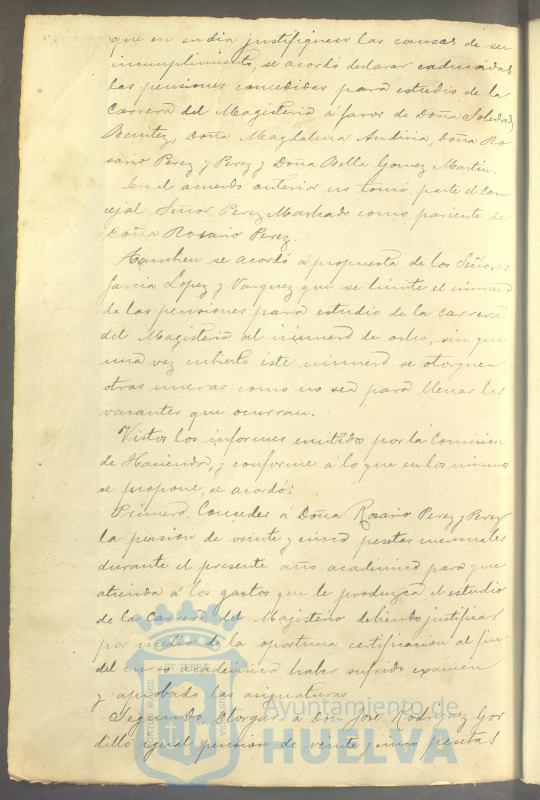 que en su dia justifiquen las causas de su
incumplimiento, se acordó declarar caducadas
las pensiones concedidas para estudio de la
Carrera del Magisterio á favor de Doña Soledad
Benitez, Doña Magdalena Andivia, Doña Ro-
sario Perez y Perez y Doña Bella Gomez Martin.
En el acuerdo anterior no tomó parte el Con-
cejal Señor Perez Machado como pariente de
Doña Rosario Perez.
Tambien se acordó á propuesta de los Señores
Garcia Lopez y Vazquez que se limite el número
de las pensiones para estudio de la carrera
del Magisterio al número de ocho, sin que
una vez cubierto este número se otorguen
otras nuevas como no sea para llenar las
vacantes que ocurran.
Vistos los informes emitidos por la Comision
de Hacienda, y conforme á lo que en los mismos
se propone, se acordó:
Primero. Conceder á Doña Rosario Perez y Perez
la pension de veinte y cinco pesetas mensuales
durante el presente año academico para que
atienda á los gastos que le produzca el estudio
de la Carrera del Magisterio debiendo justificar
por medio de la oportuna certificacion al fin
del curso academico haber sufrido examen
y aprobado las asignaturas
Segundo. Otorgar á Don José Rodriguez Gor-
dillo igual pension de veinte y cinco pesetas
PORTUS MARIS ET TERRAE CUSTODIA
Ayuntamiento de
HUELVA